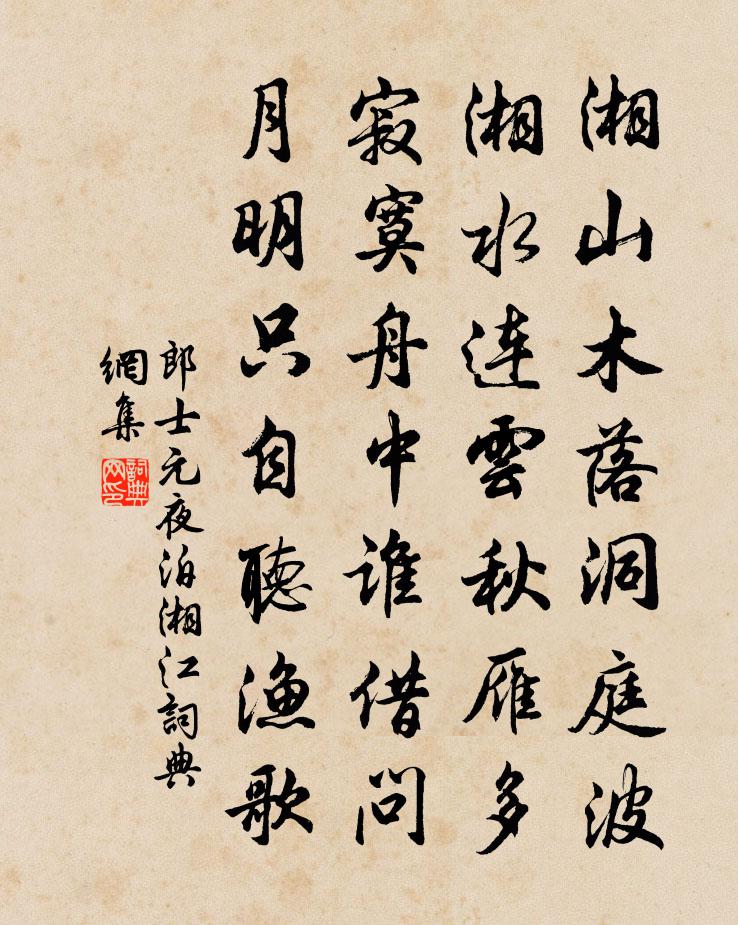 湘山木落洞庭波
湘水連雲秋雁多
寂寞舟中誰借問
月明只自聽漁歌
郎士元夜泊湘江詞典
網集
詞典
网印